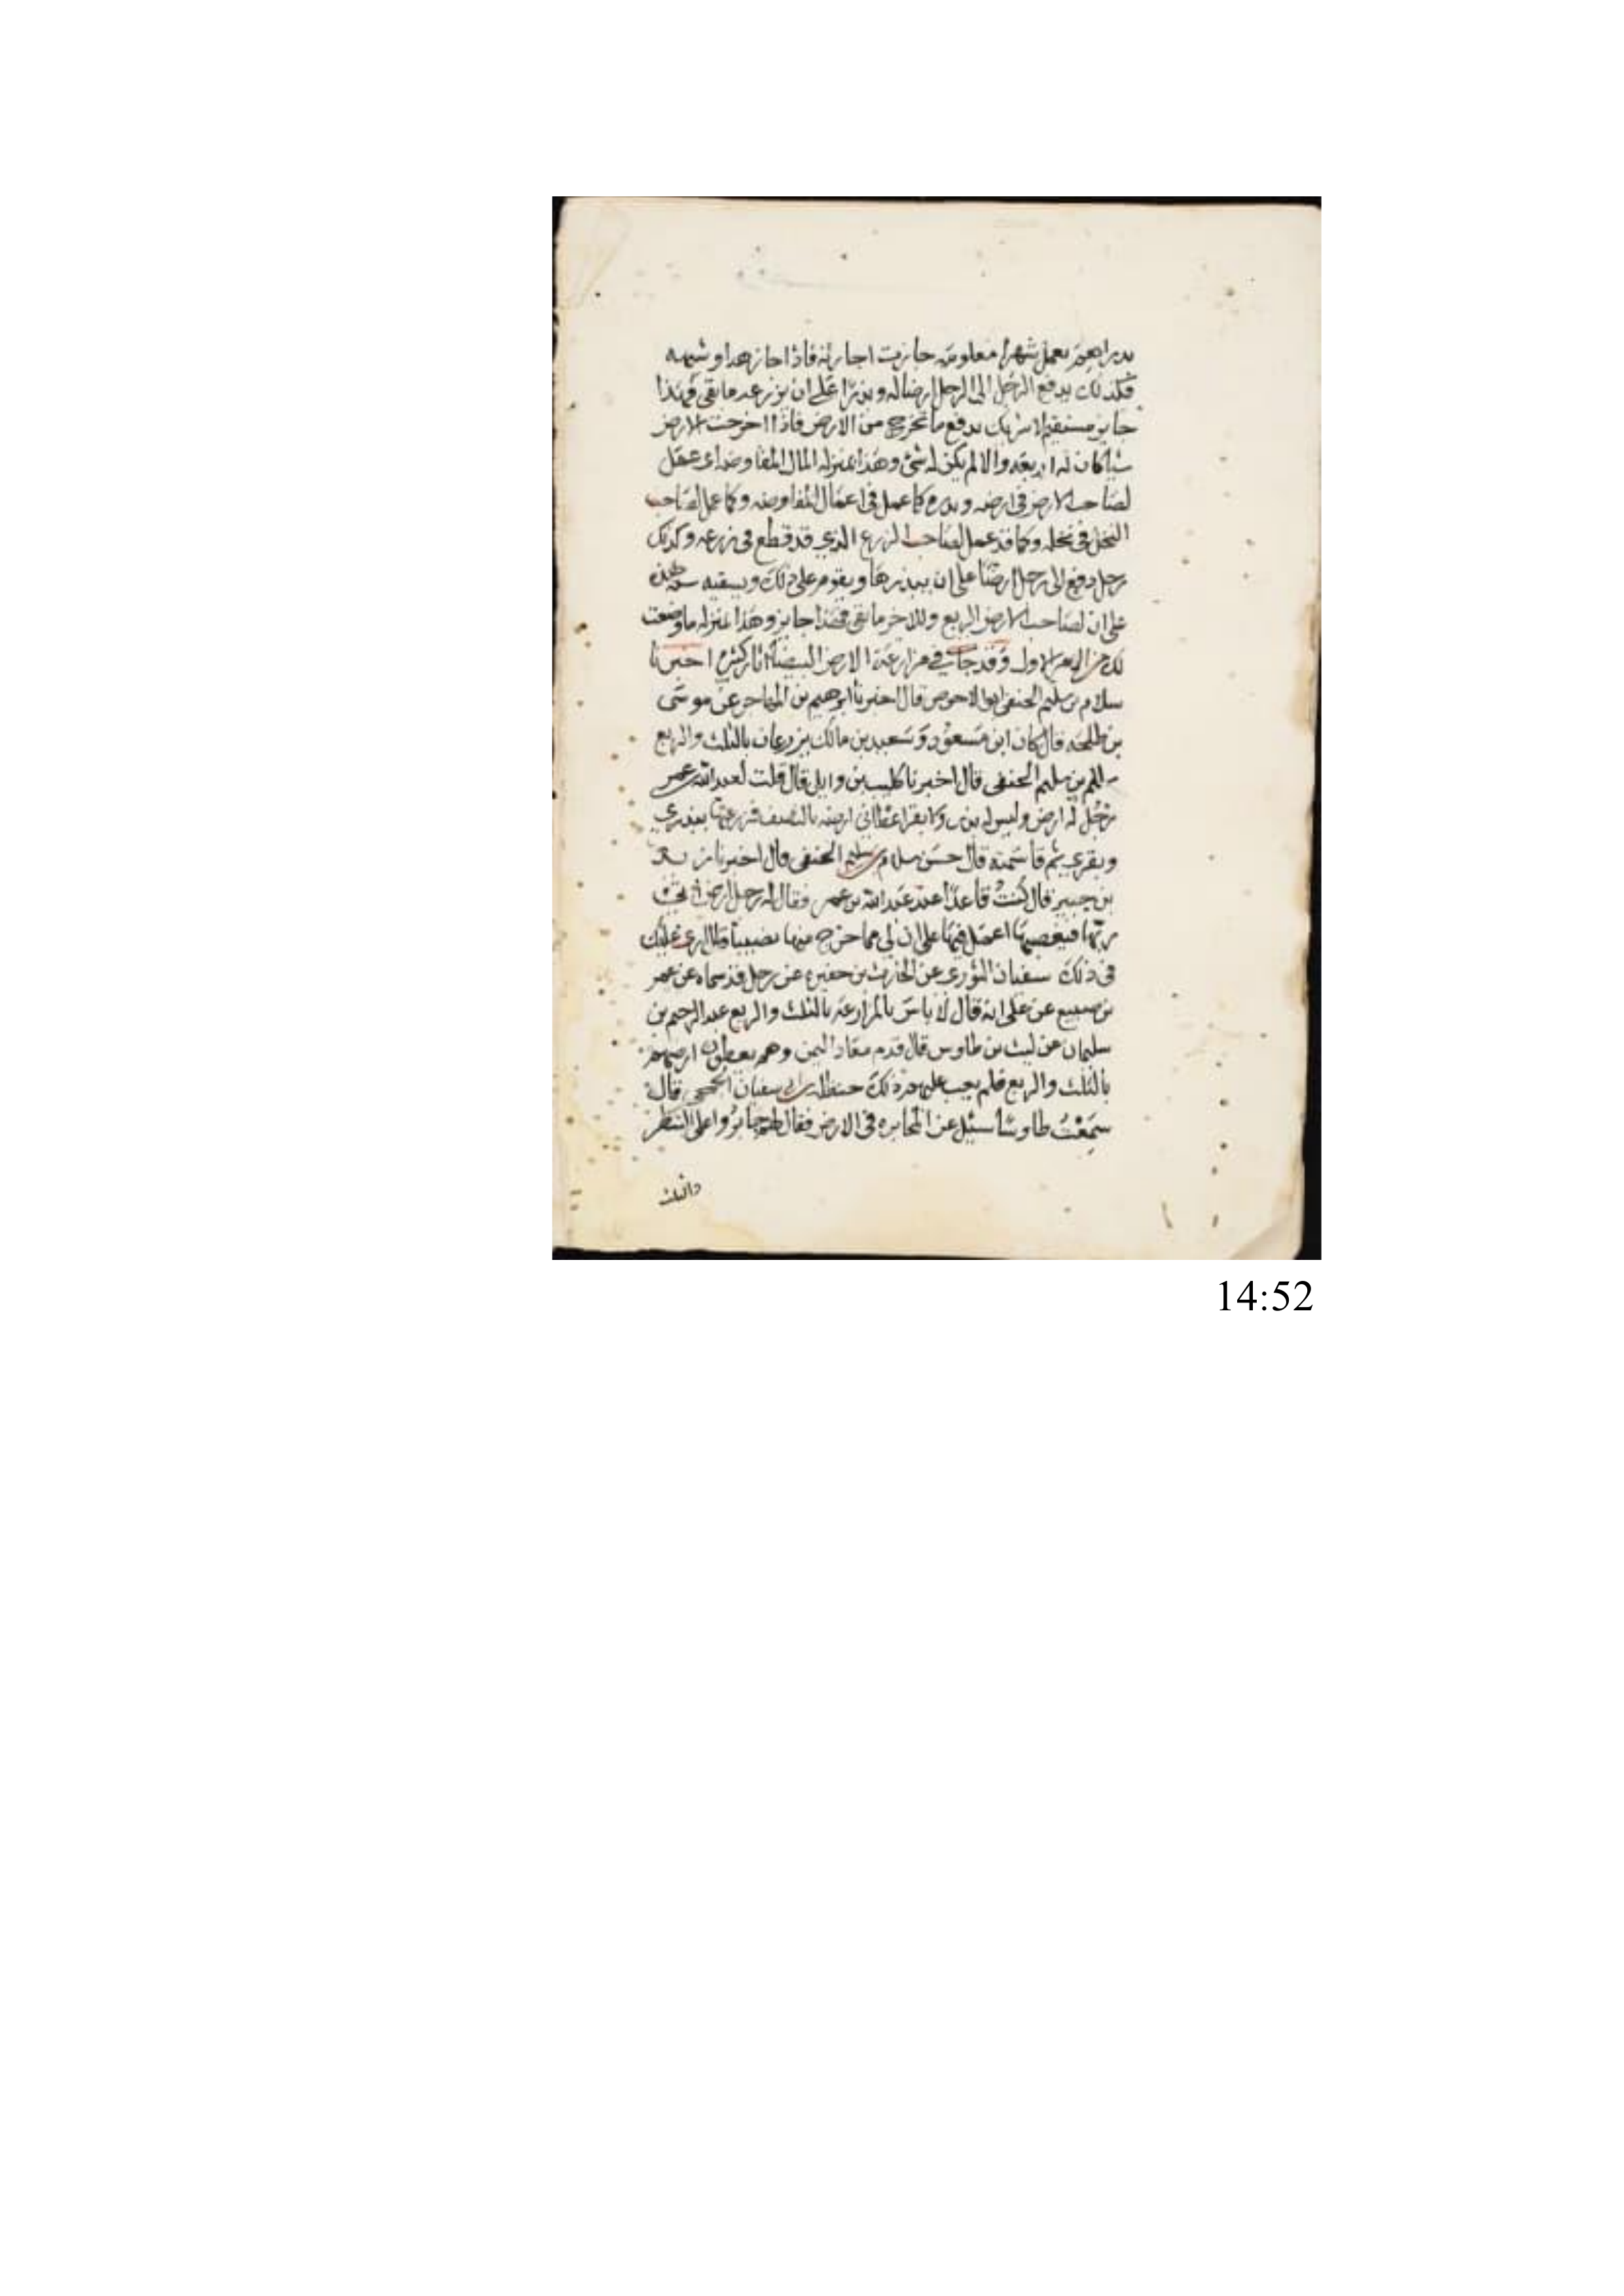 بدراهم يعمل شهرا معلومه جازت اجارته فاذا جاز هذا وشبهه
فكذلك يدفع الرجل الى الرجل ارضا له وبذرا على ان يزرعه ما بقى فهذا
جايز مستقيم لاشريك يدفع ما تخرج من الارض فاذا اخرجت الارض
شيا كان له اربعه والا لم يكن له شئ وهذا بمنزله المال المفاوضه اى عمل
لصاحب الارض فى ارضه وبذره كما عمل فى اعمال المفاوضه وكما عمل لصاحب
النخل فى نخله وكما قد عمل لصاحب الزرع الذي قد قطع فى زرعه وكذلك
رجل دفع الى رجل ارضا على ان يبذرها ويقوم على ذلك ويسقيه هذه
على ان لصاحب الارض الربع وللاخر ما بقى فهذا جايز وهذا بمنزله ما وضعت
لك من الاول وقد جات في مزارعة الارض البيضا اثار كثيره اخبرنا
سلام بن سليم الحنفى ابو الاحوص قال اخبرنا ابرهيم بن المهاجر عن موسى
بن طلحه قال كان ابن مسعود وسعيد بن مالك يزرعان بالثلث والربع
بن سليم الحنفى قال اخبرنا كليب بن وايل قال قلت لعبد الله بن عمر
رجل له ارض وليس له بذر ولا بقر اعطانى ارضه بالنصف فزرعتها ببذري
وبقري ثم قاسمته قال حسن سلام بن سليم الحنفى قال اخبرنا
بن جبير قال كنت قاعدا عند عبد الله بن عمر فقال له رجل
ربها اعمل فيها على ان لي مما خرج منها نصيبا
فى ذلك سفيان الثورى عن الحارث بن حفيره عن رجل قد سماه عن عمر
بن صبيع عن على انه قال لا باس بالمزارعة بالثلث والربع عبد الرحيم بن
سليمان عن ليث بن طاوس قال قدم معاذ اليمن وهم يعطون ارضهم
بالثلث والربع فلم يعب عليهم ذلك حنظله بن ابى سفيان الجمحى قال
سمعت طاوسا سئل عن المخابره فى الارض فقال جايز واعلى الشطر
والثلث
14:52